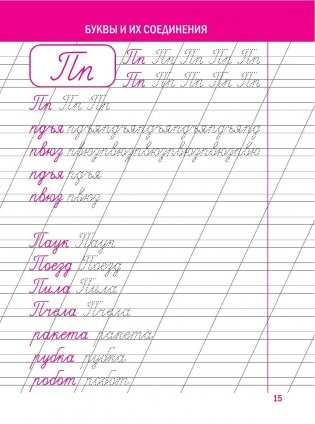 БУКВЫ И ИХ СОЕДИНЕНИЯ
Пп
Пп Пп Пп Пп Пп
Пп Пп Пп Пп Пп
Пп Пп Пп
пдъя пдъяпдъяпдъяпдъяпдъяпд
пвюз пвюзпвюзпвюзпвюзпвю
пдъя пдъя
пвюз пвюз
Паук Паук
Поезд Поезд
Пила Пила
Пчела Пчела
ракета ракета
рубка рубка
робот робот
15